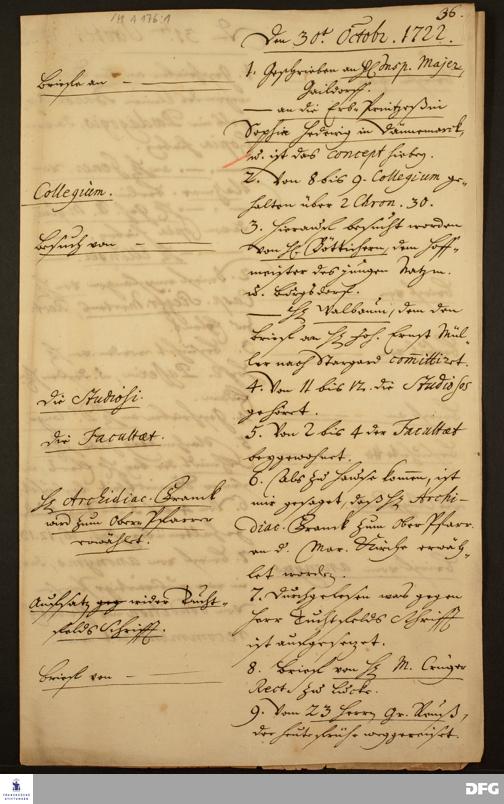 H A 176:1
36.
Den 30st. Octobr. 1722.
Briefe an — 
1. Geschrieben an H. Insp. Majer,
Gaildorf.
— an die Erbe Prinzeßin
Sophia Hedewig in Dännemark,
u. ist das concept hiebey.
Collegium.
2. Von 8 bis 9. Collegium ge-
halten über 2 Chron. 30.
Besuch von —
3. Hierauf besucht worden
von H. Böttichern, dem Hoff-
meister des jungen Natzm.
u. Bogsdorf.
— H. Walbaum, dem den
Brief an H. Joh. Ernst Mül-
ler nach Stargard committiret.
Die Studiosi.
4. Von 11 bis 12. die Studiosos
gehöret.
Die Facultaet.
5. Von 2 bis 4 der Facultaet
beygewohnet.
H. Archidiac. Franck
wird zum Ober Pfarrer
erwählet.
6. Als zu Hause kommen, ist
mir gesaget, daß H. Archi-
diac. Franck zum Ober Pfarr.
an d. Mar. Kirche erwäh-
let worden.
Auffsatz wider Tucht-
felds Schrifft.
7. Durchgelesen was gegen
Herr Tuchtfelds Schrifft
ist aufgesetzet.
Brief von —
8. Brief von H. M. Crüger
Rect. zu Löcke.
9. Vom 23 Herrn Gr. Reuß,
der heute frühe weggereiset.
FRANCKESCHE
STIFTUNGEN
DFG